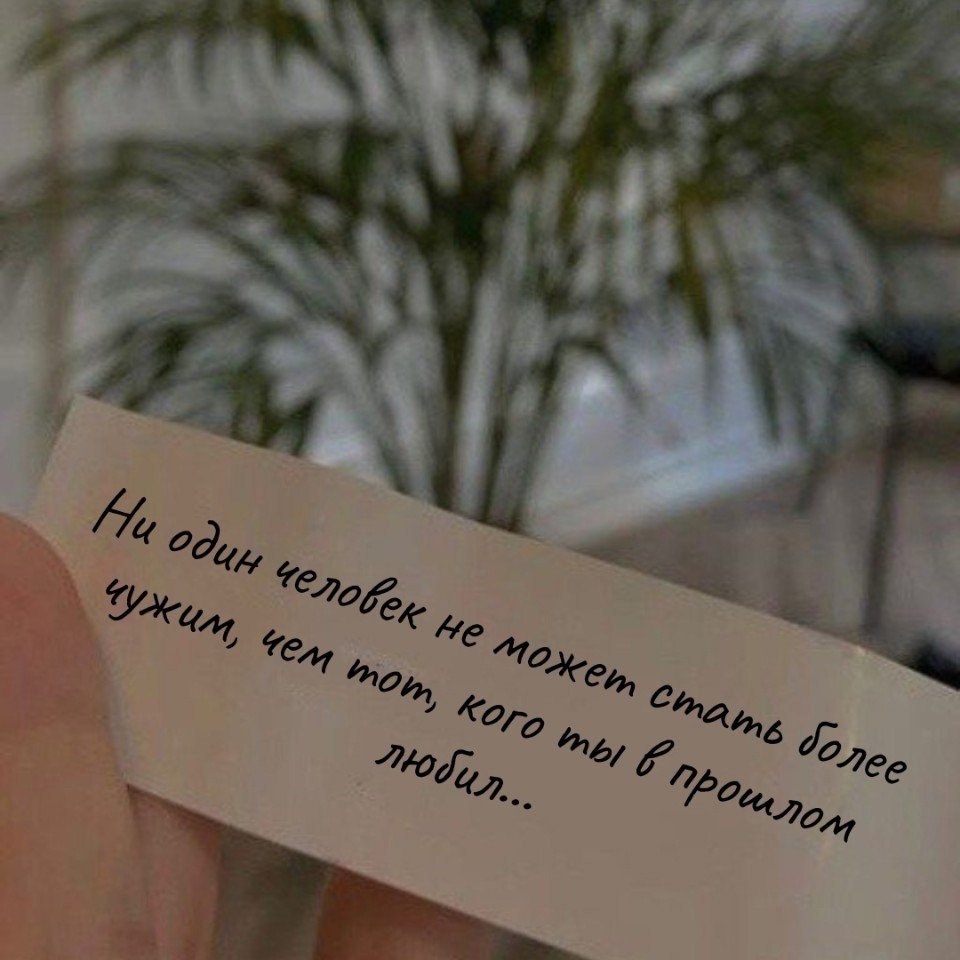 Ни один человек не может стать более
чужим, чем тот, кого ты в прошлом
любил...